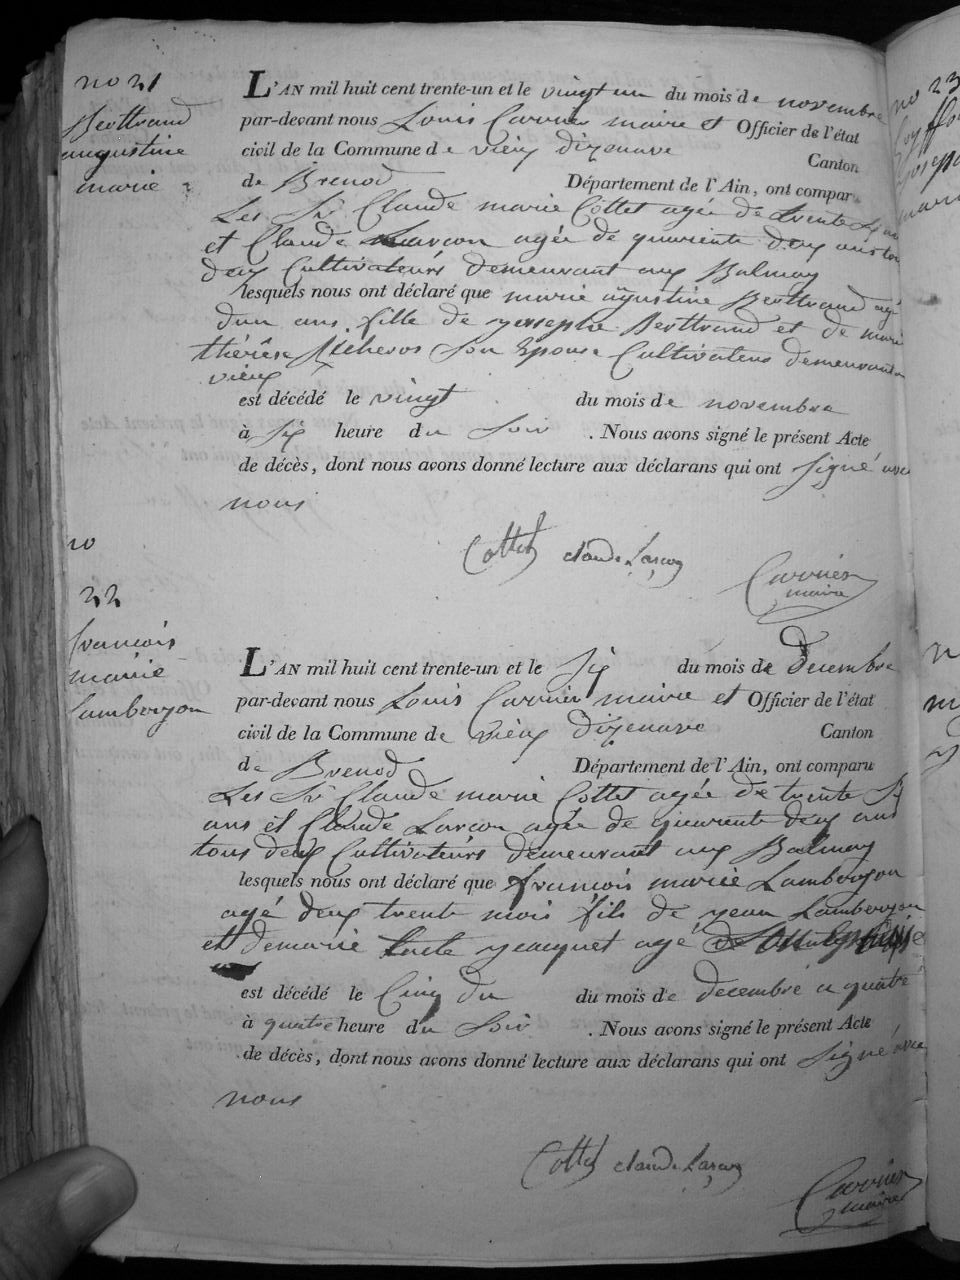 no 21
Berttrand
augustine
marie
L'AN mil huit cent trente-un et le vingt un du mois de novembre
par-devant nous Louis Carrier maire et Officier de l'état
civil de la Commune de vieux dizenave Canton
de Brenod Département de l'Ain, ont compar
Les Sr Claude marie Cottet agée de trente
et Claude Larçon agée de quarente deux ans tou
deux Cultivateurs demeurant aux Balmay
lesquels nous ont déclaré que marie augustine Berttrand agé
dun ans fille de yosephe Berttrand et de marie
thérêse son Epouse Cultivateurs demeurant a
vieux
est décédé le vingt du mois de novembre
à six heure du Soir . Nous avons signé le présent Acte
de décès, dont nous avons donné lecture aux déclarans qui ont Signé avec
nous
Cottet claude Larçon
Carrier
maire
no
22
francois
marie
Lambergon
L'AN mil huit cent trente-un et le Six du mois de Decembre
par-devant nous Louis Carrier maire et Officier de l'état
civil de la Commune de vieux dizenave Canton
de Brenod Département de l'Ain, ont comparu
Les Sr Claude marie Cottet agée de trente Six
ans et Claude Larçon agée de quarente deux ans
tous deux Cultivateurs demeurant aux Balmay
lesquels nous ont déclaré que francois marie Lambergon
agé deux trente mois fils de yean Lambergon
et demarie yacquet agé
est décédé le Cinq du du mois de decembre a quatre
à quatre heure du Soir . Nous avons signé le présent Acte
de décès, dont nous avons donné lecture aux déclarans qui ont Signé avec
nous
Cottet claude Larçon
Carrier
maire
no 23